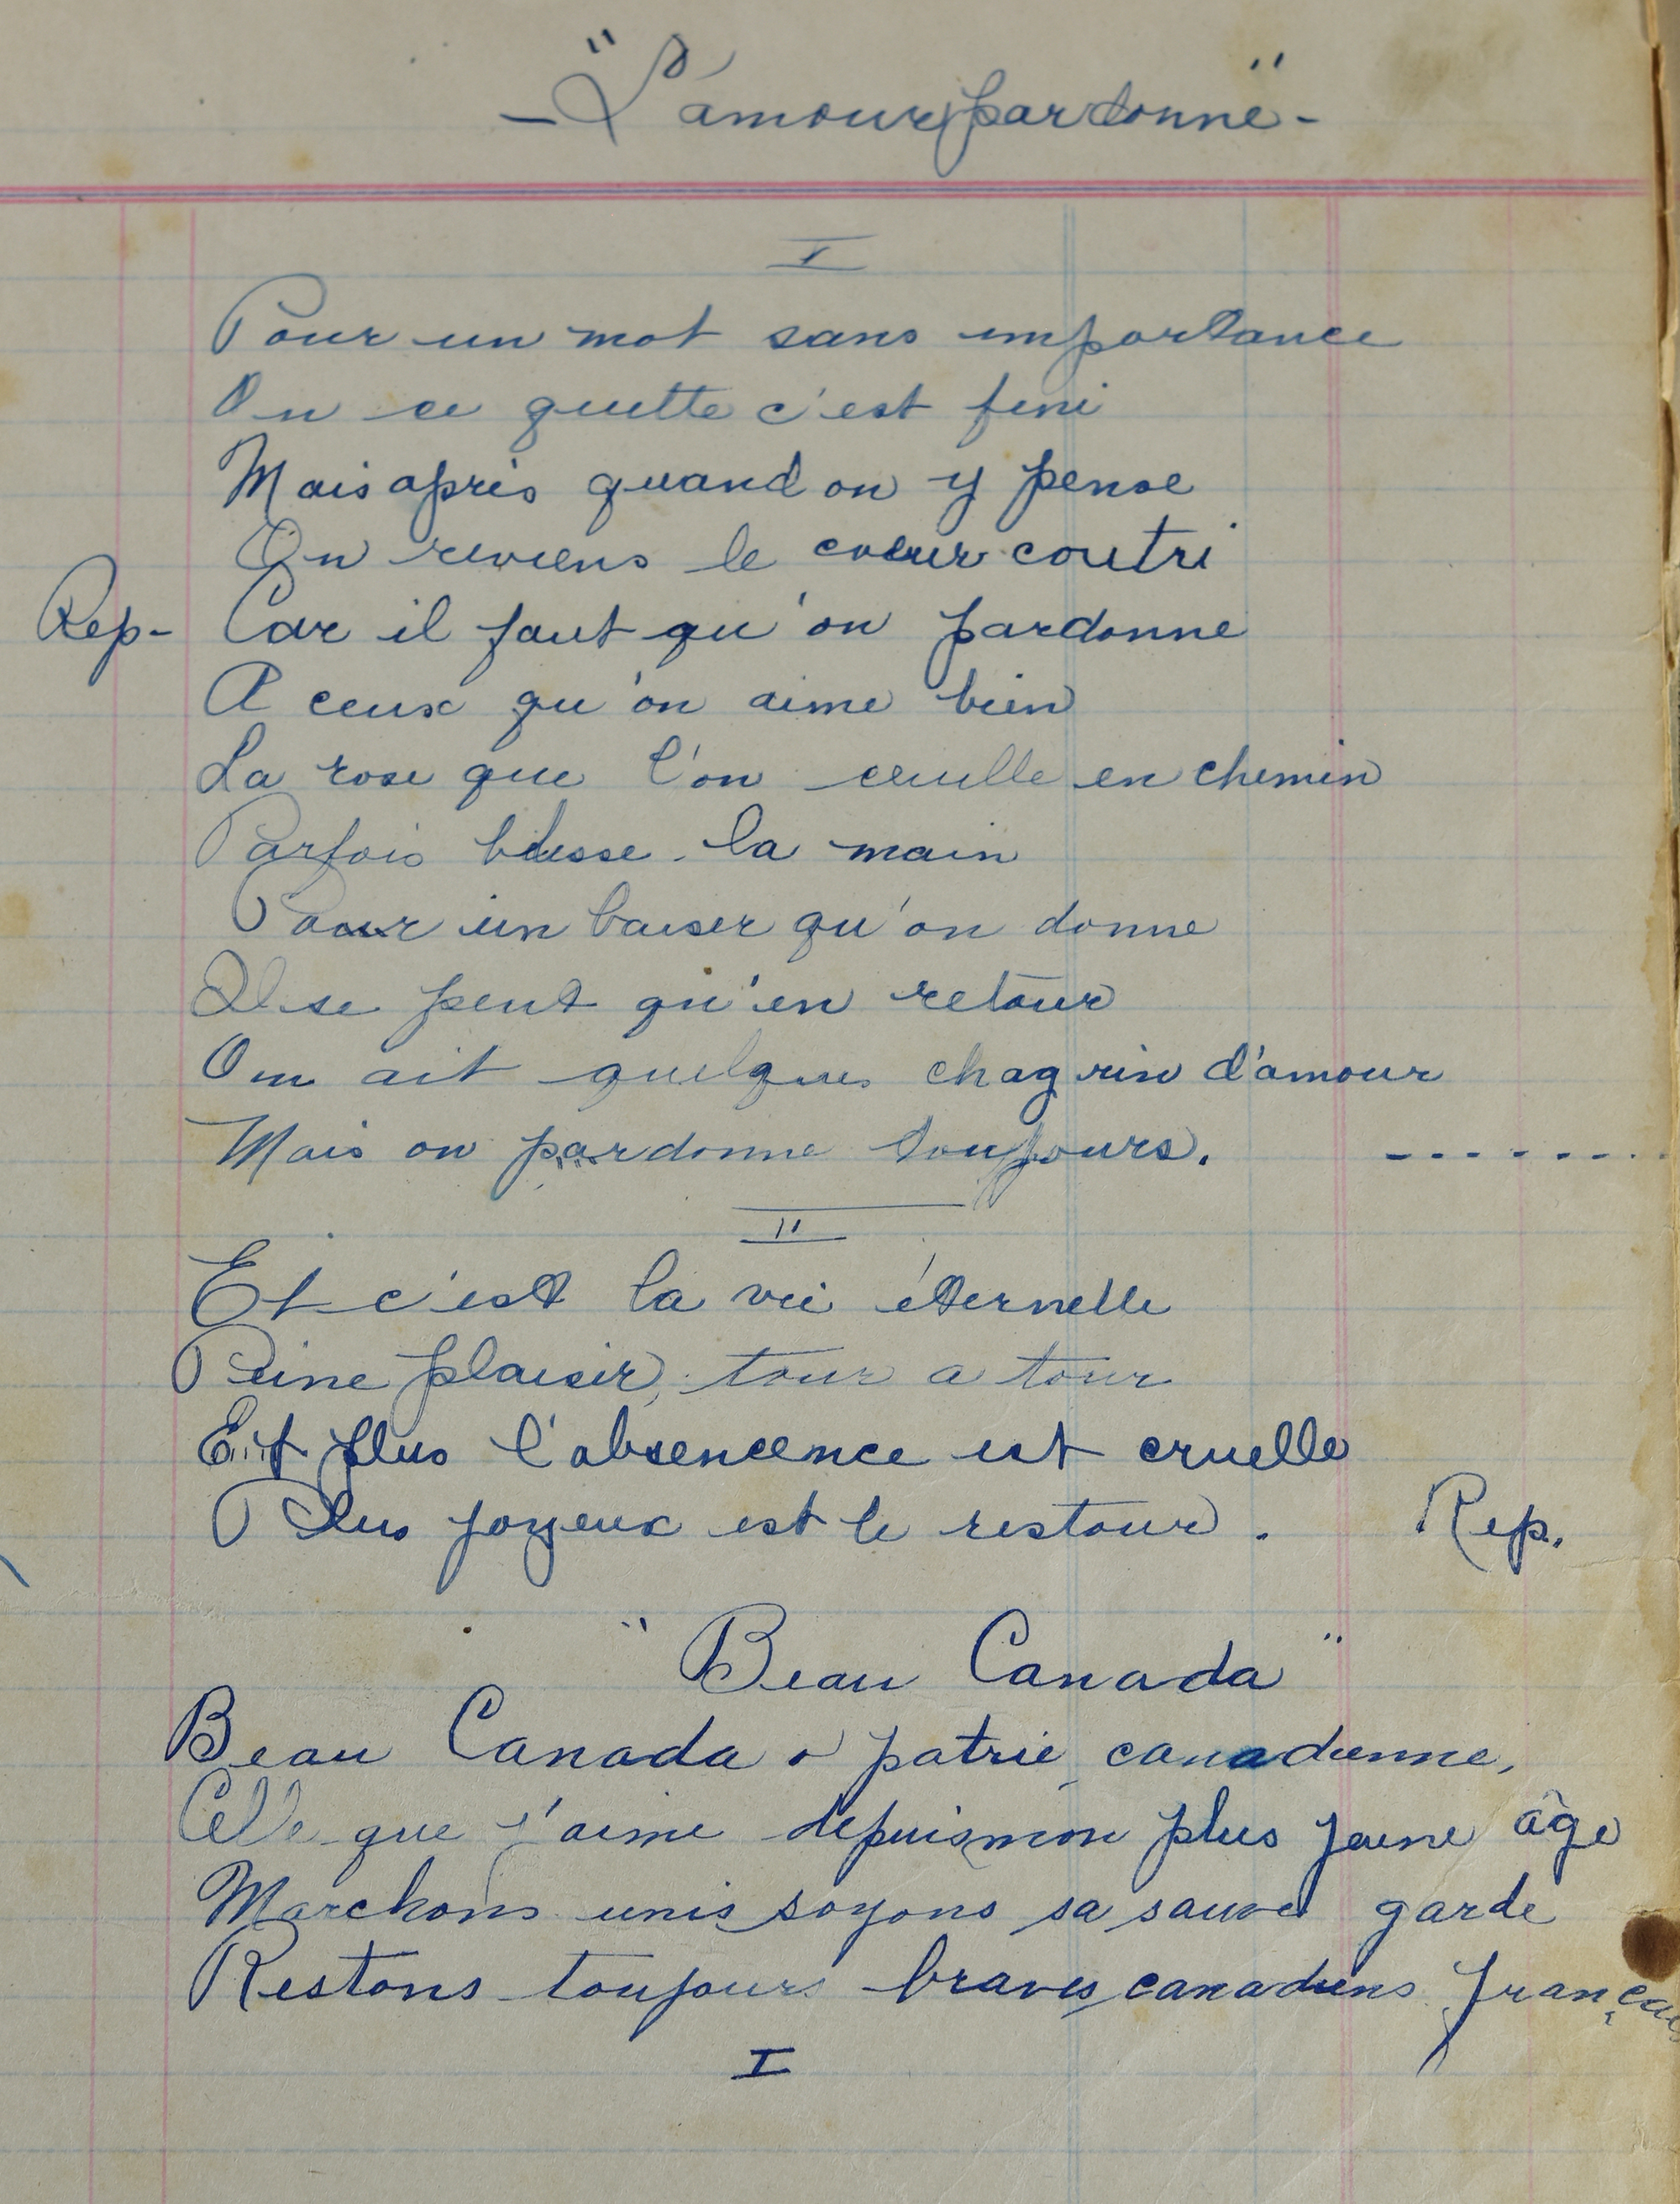 - "L'amour pardonne" -
I
Pour un mot sans importance
On se quitte c'est fini
Mais après quand on y pense
On reviens le coeur coutri
Rep- Car il faut qu'on pardonne
A ceux qu'on aime bien
La rose que l'on ceuille en chemin
Parfois blesse la main
Pour un baiser qu'on donne
Il se peut qu'en retour
On ait quelques chagrin d'amour
Mais on pardonne toujours. --------
II
Et c'est la vie éternelle
Peine plaisir, tour a tour
Et plus l'absencence est cruelle
Plus joyeux est le restour. Rep.
"Beau Canada"
Beau Canada o patrie canadienne,
Celle que j'aime depuis mon plus jeune âge
Marchons unis soyons sa sauve garde
Restons toujours braves canadiens français
I